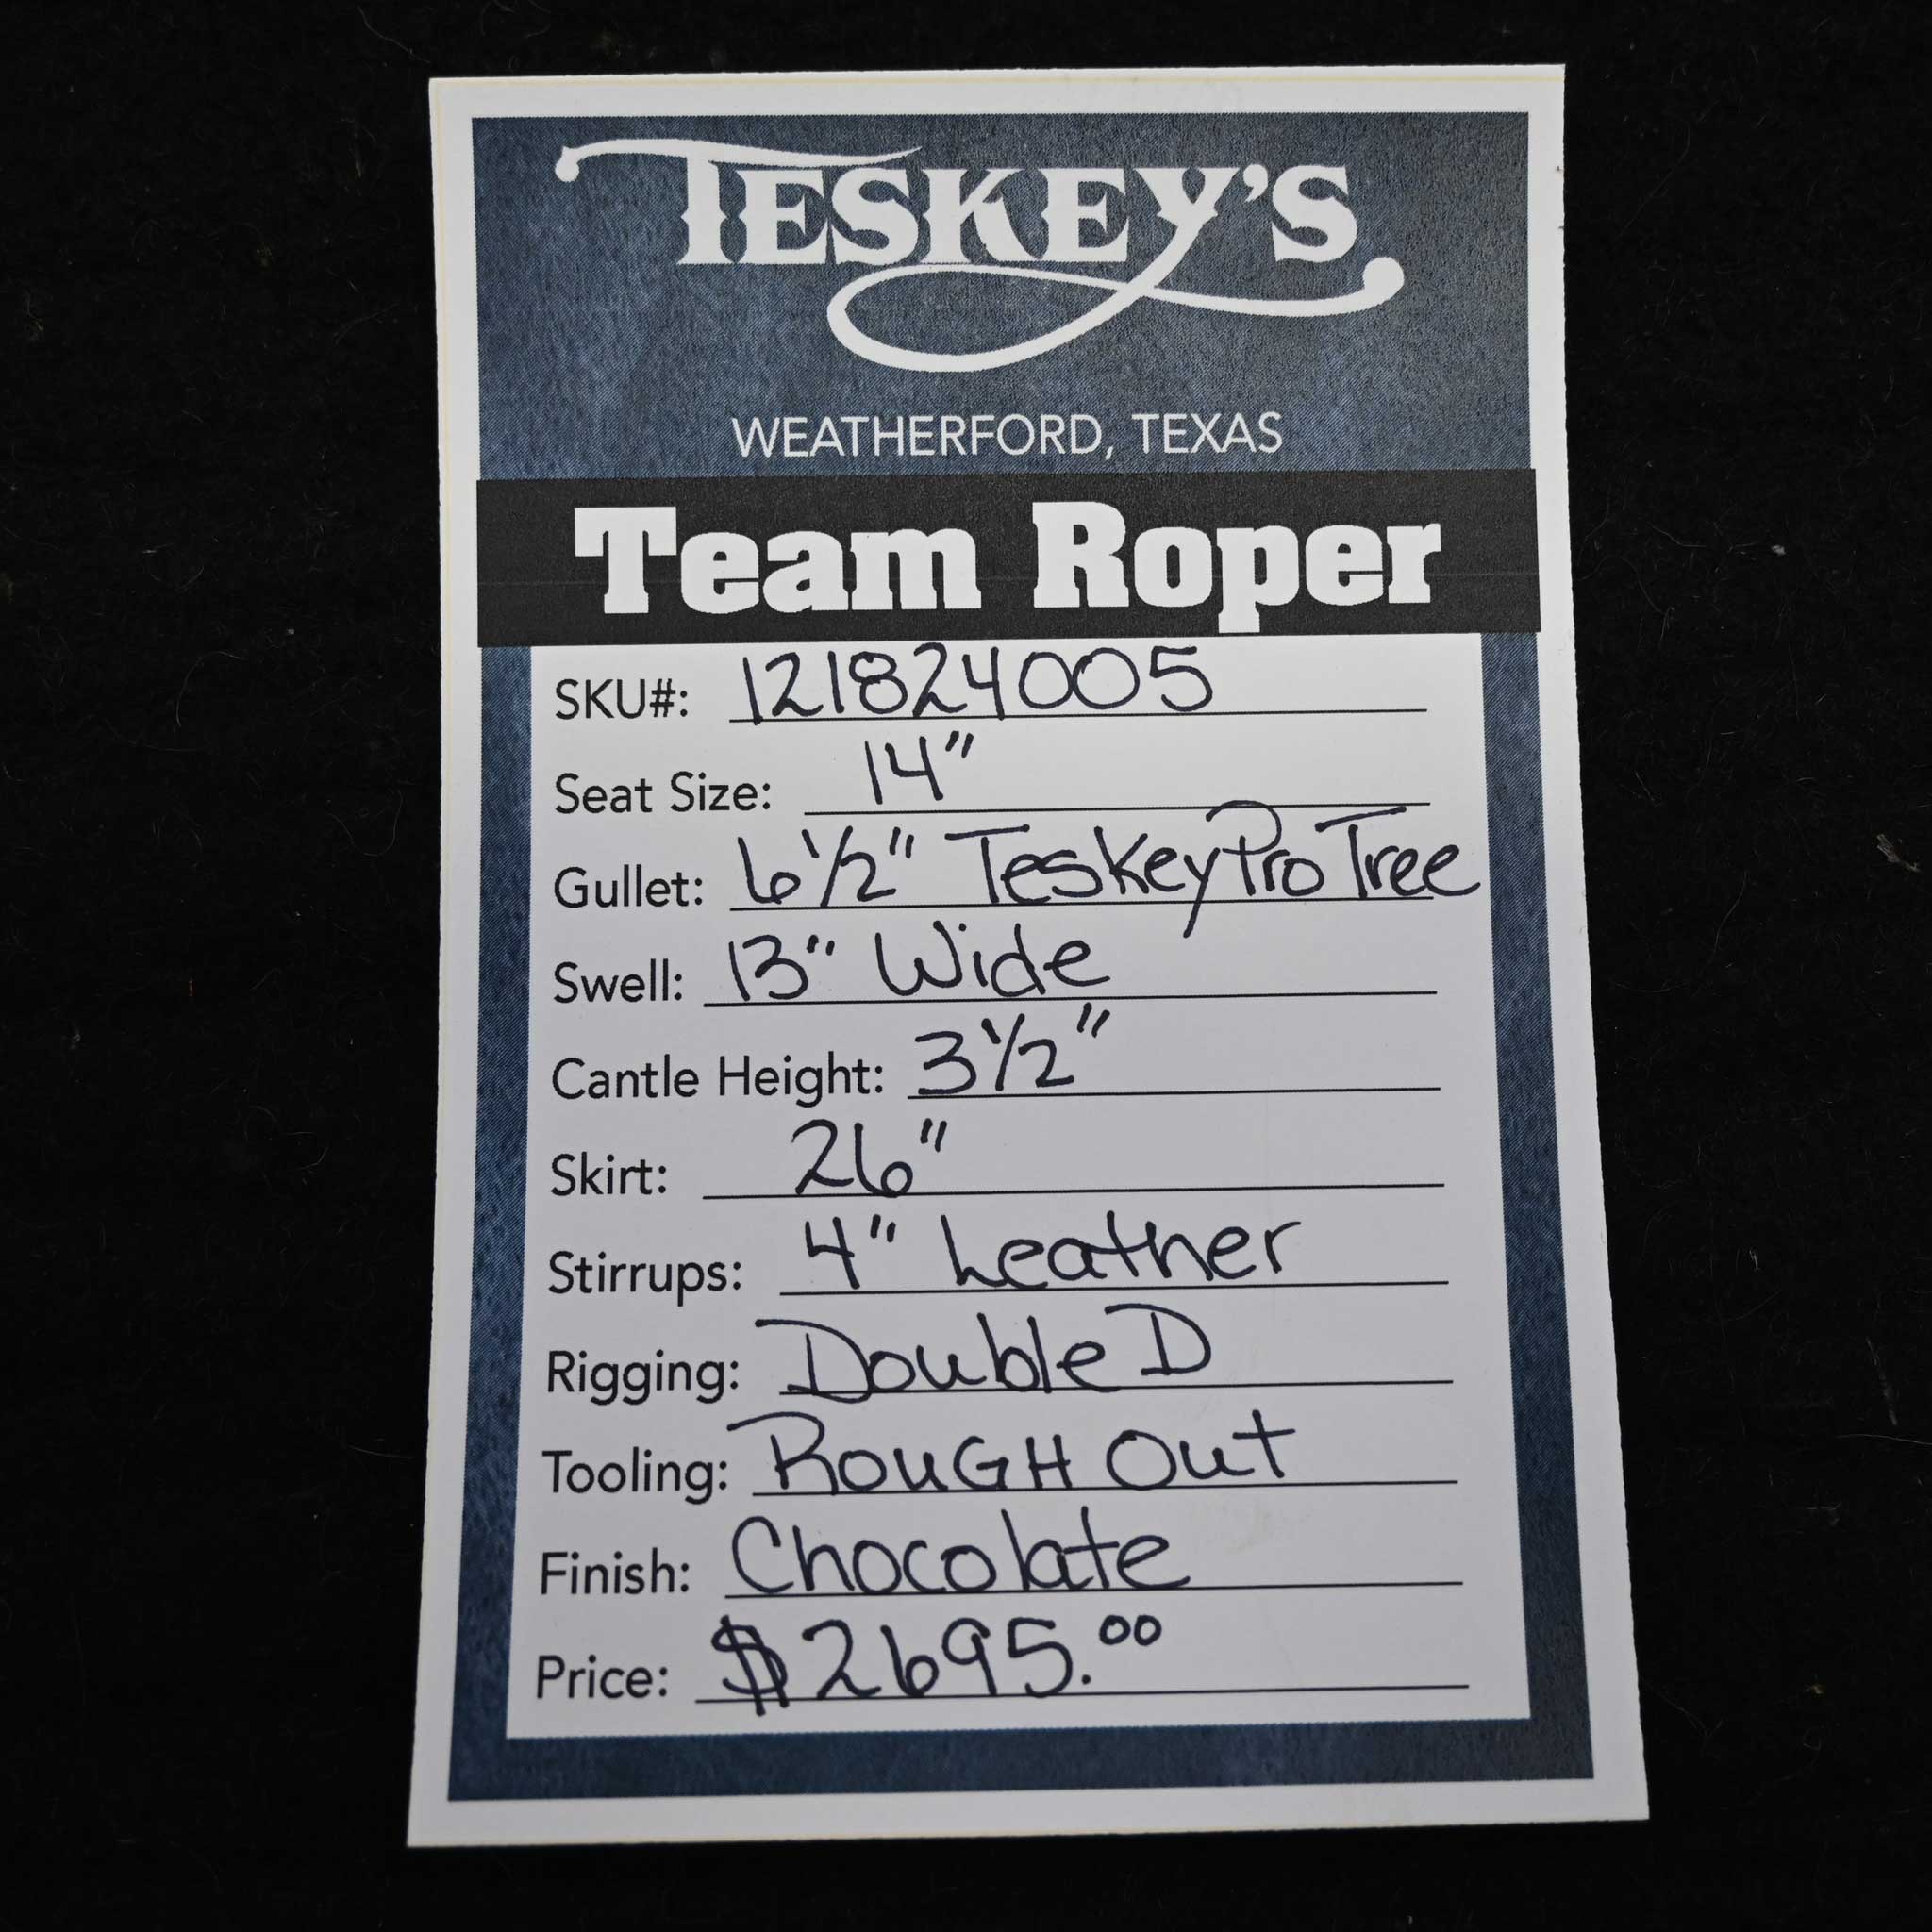 TESKEY'S
WEATHERFORD, TEXAS
Team Roper
SKU#: 121824005
Seat Size: 14"
Gullet: 6 1/2" Teskey Pro Tree
Swell: 13" Wide
Cantle Height: 3 1/2"
Skirt: 26"
Stirrups: 4" Leather
Rigging: Double D
Tooling: ROUGH OUT
Finish: Chocolate
Price: $2695.00